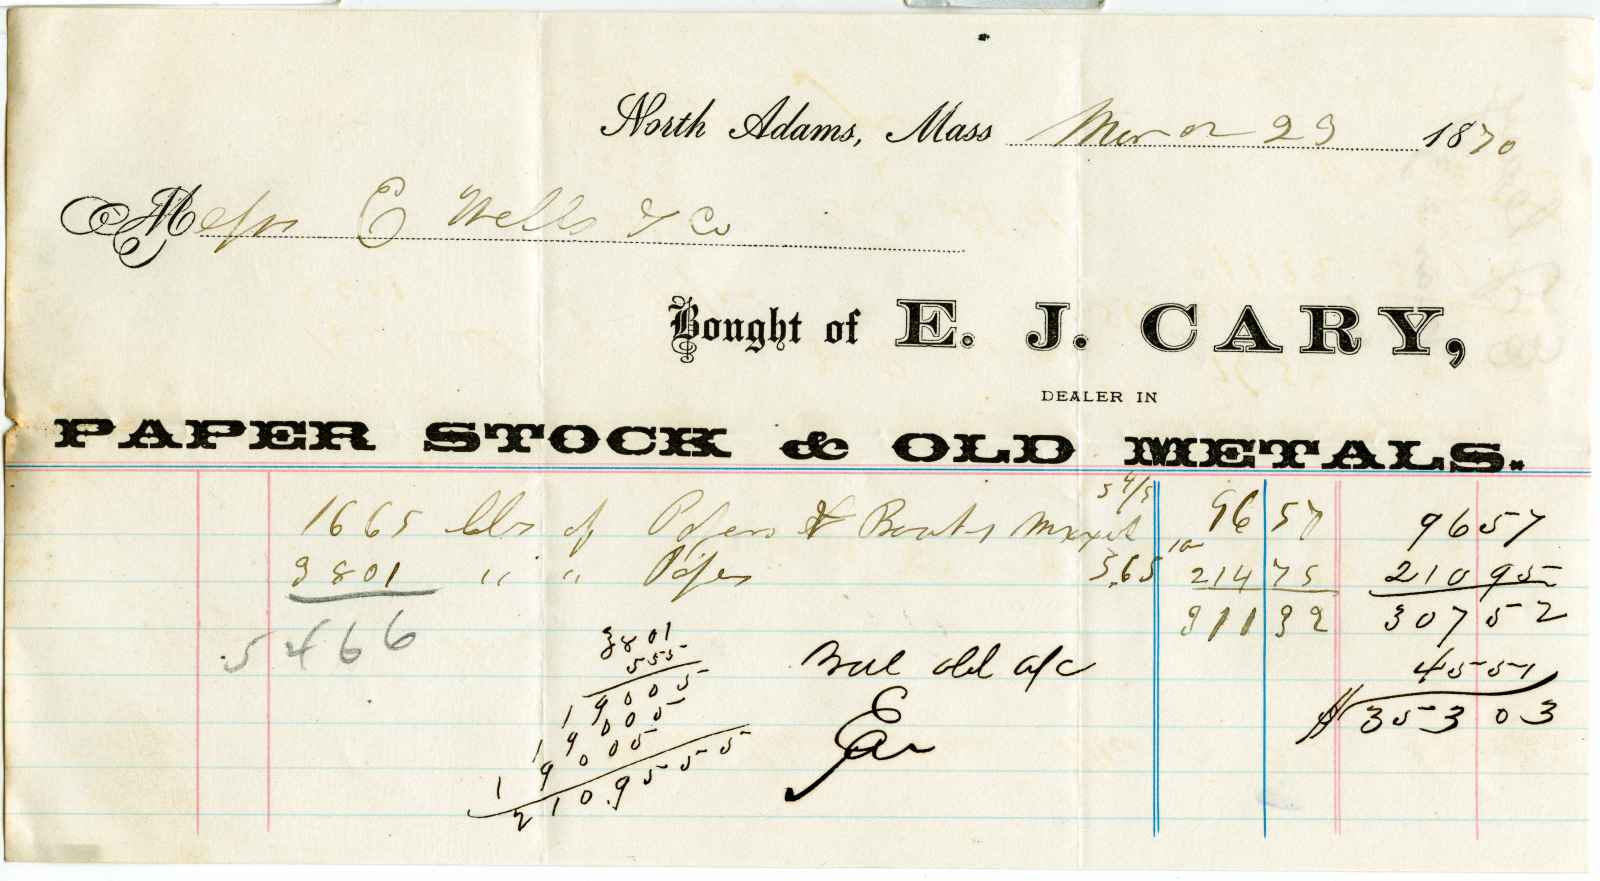 North Adams, Mass March 23 1870
Messrs E Wells & Co
Bought of E. J. CARY,
DEALER IN
PAPER STOCK & OLD METALS.
1665 lbs of Papers & Books Mixed 5 4/5 96 57 96 57
3801 " " Papes 5.65 214 75 210 95
5466 311 32 307 52
3801
555
Bal old a/c 45 51
19005
19005 $353 03
19005
210.9555